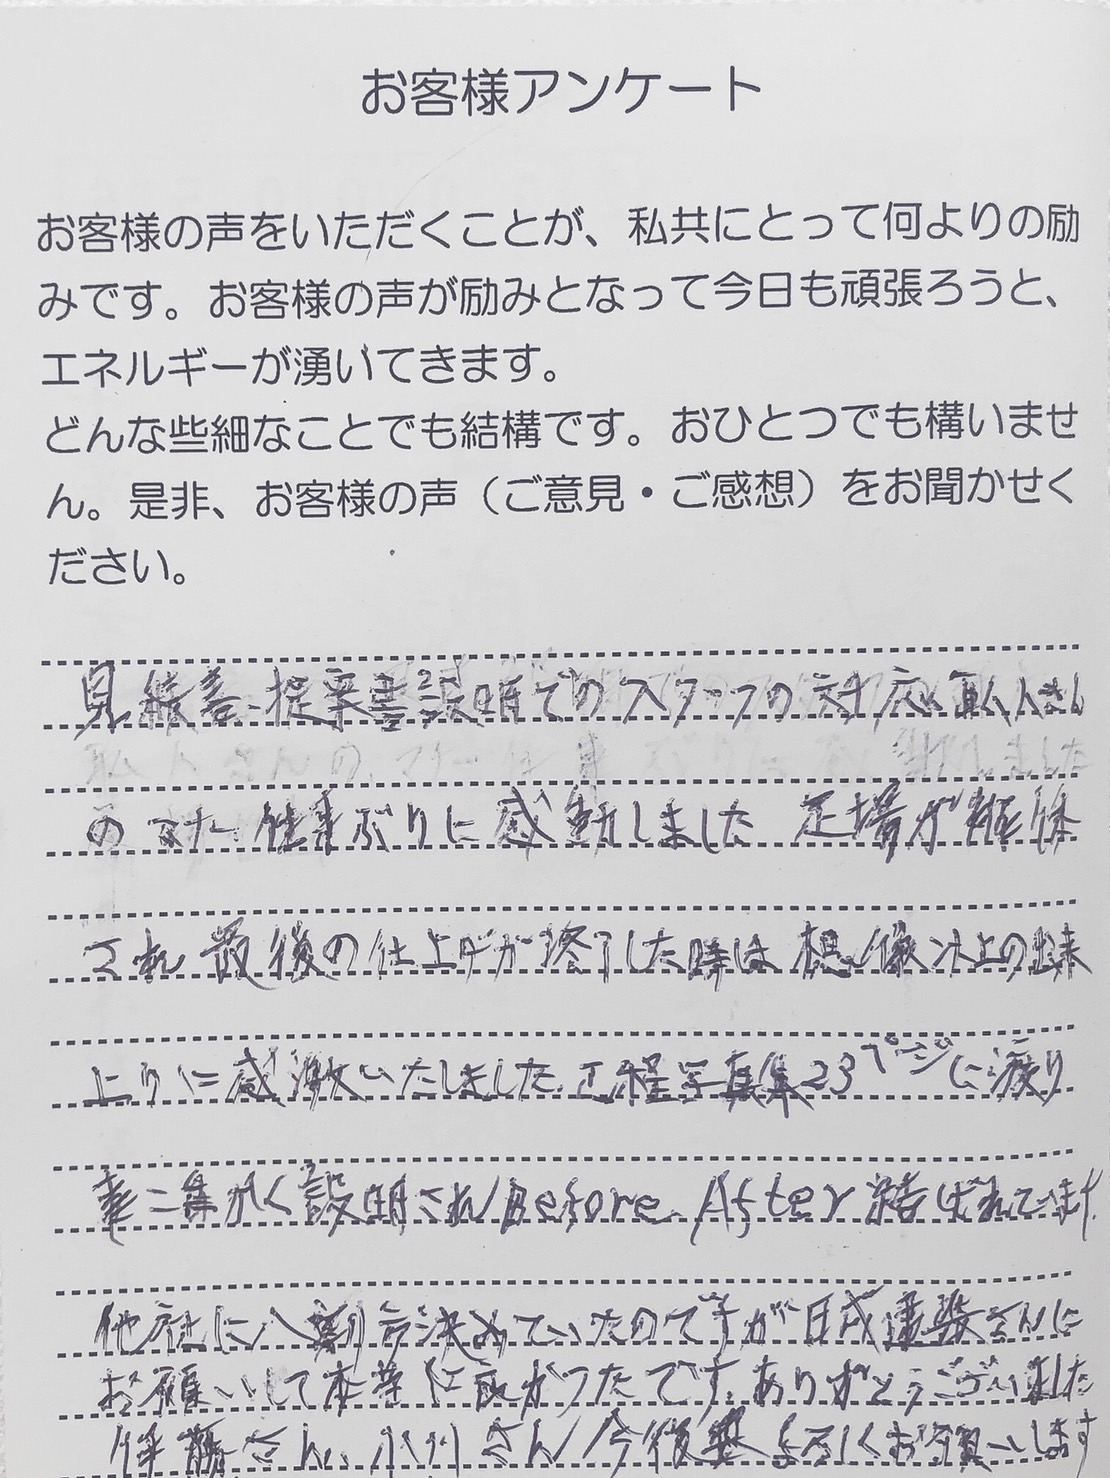 お客様アンケート
お客様の声をいただくことが、私共にとって何よりの励
みです。お客様の声が励みとなって今日も頑張ろうと、
エネルギーが湧いてきます。
どんな些細なことでも結構です。おひとつでも構いませ
ん。是非、お客様の声（ご意見・ご感想）をお聞かせく
ださい。
見積書、提案書説明でのスタッフの対応、職人さん
のマナー仕事ぶりに感動しました 足場が解体
され最後の仕上げが終了した時は想像以上の出来
上りに感激いたしました。工程写真集23ページに渡り
事こまかく説明されBefore Afterで結ばれています。
他社に八割方決めていたのですが日成建装さんに
お願いして本当に良かったです。ありがとうございました
伊藤さん、小川さん今後共よろしくお願いします